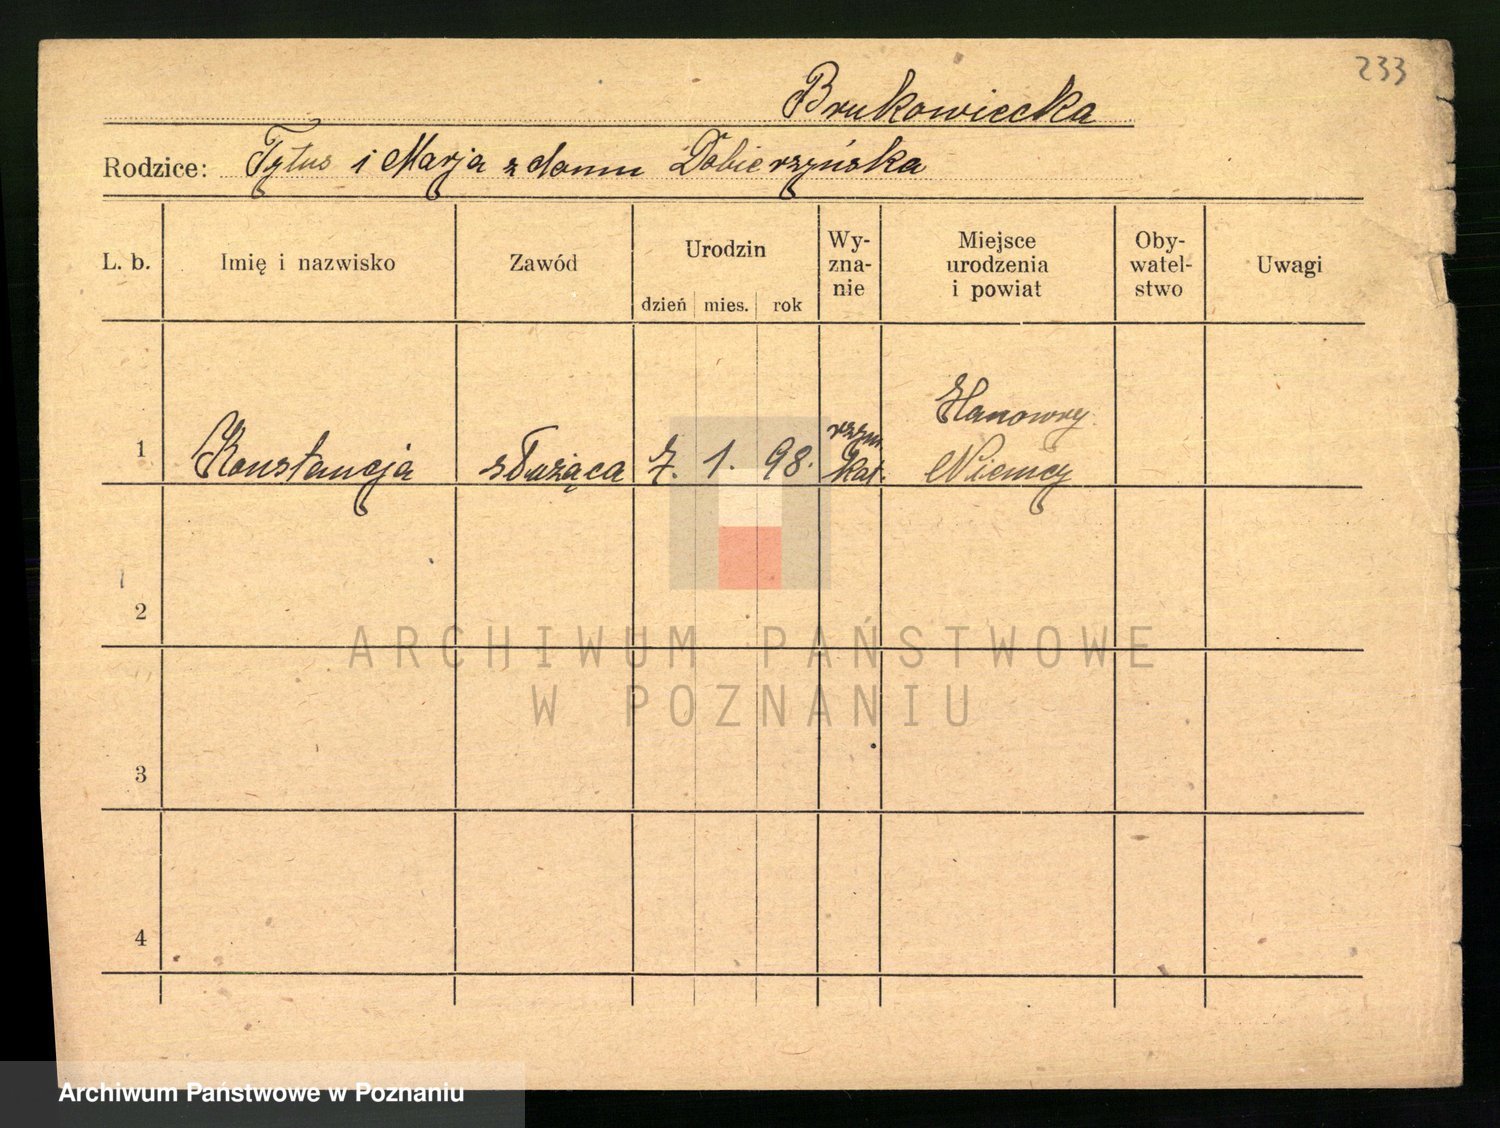 233
Brukowiecka
Rodzice: Tytus i Marja z domu Dobierzyńska
L. b. Imię i nazwisko Zawód Urodzin dzień mies. rok Wy-zna-nie Miejsce urodzenia i powiat Oby-watel-stwo Uwagi
1 Konstancja służąca 7. 1. 98. rzym. kat. Hanowry Niemcy
2
3
4
ARCHIWUM PAŃSTWOWE
W POZNANIU
Archiwum Państwowe w Poznaniu